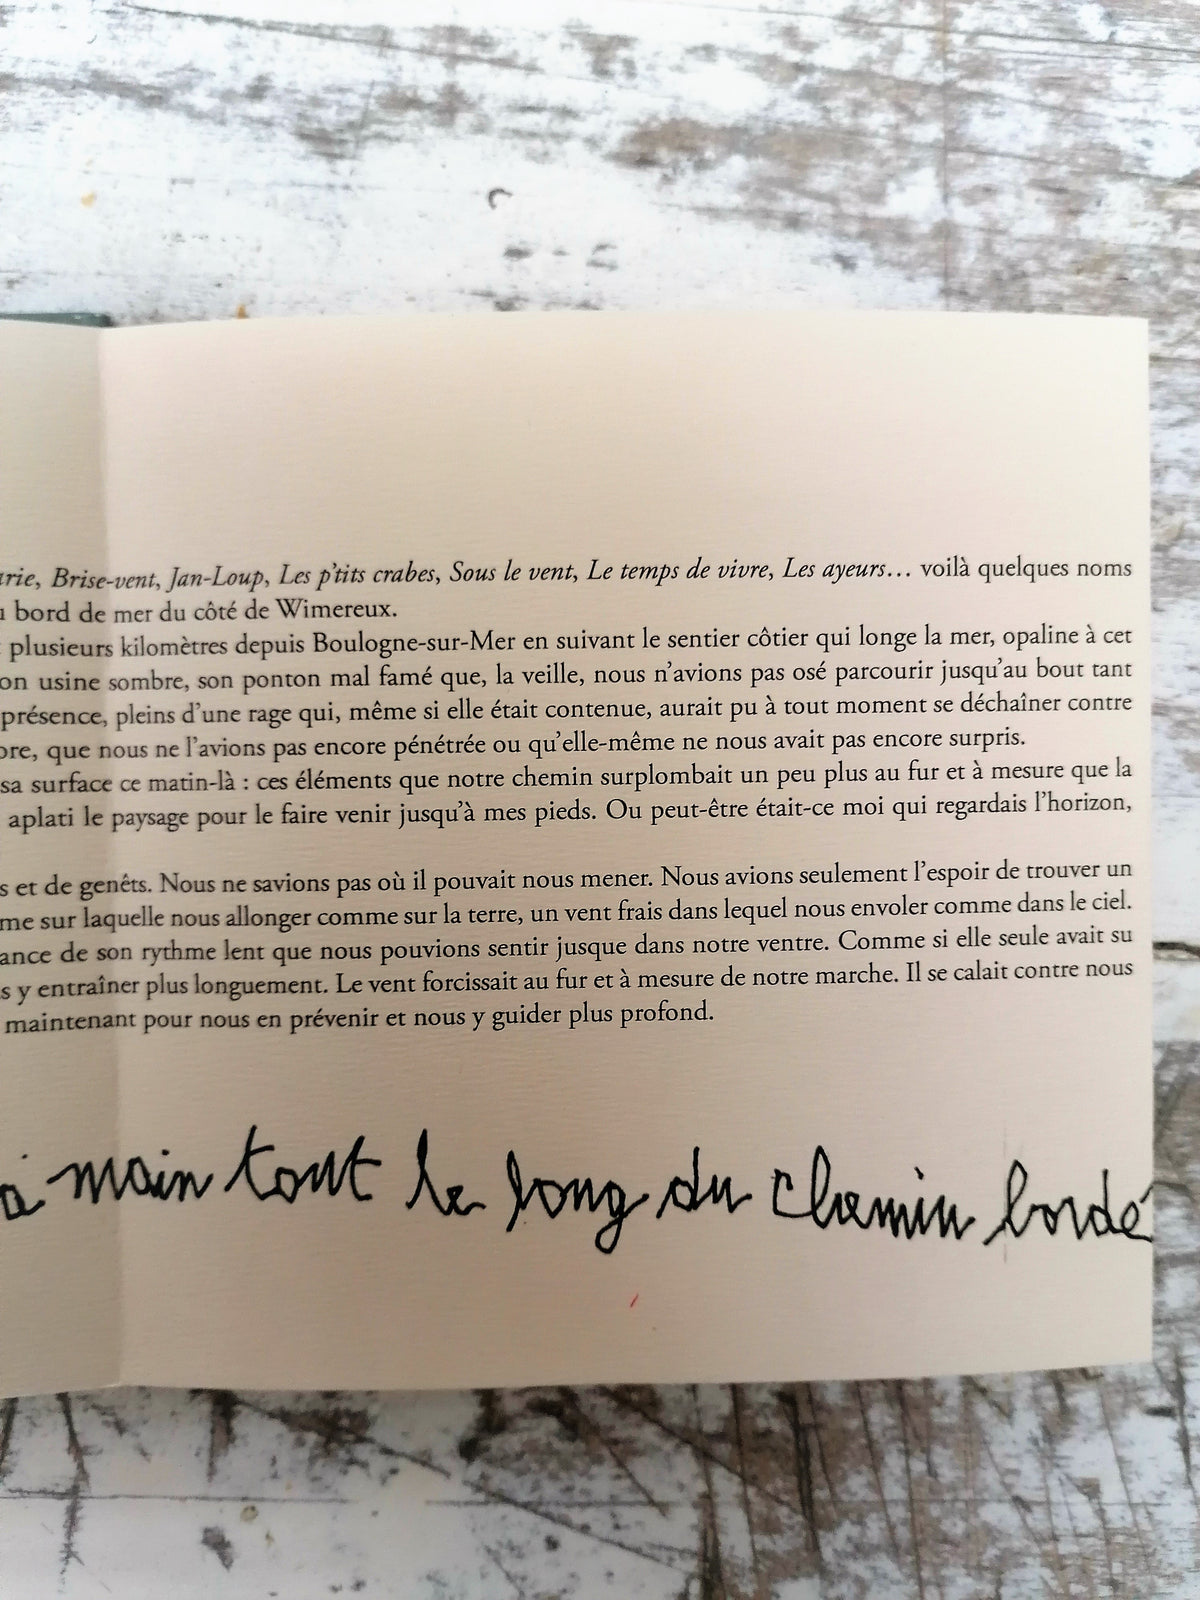 arie, Brise-vent, Jan-Loup, Les p'tits crabes, Sous le vent, Le temps de vivre, Les ayeurs… voilà quelques noms
bord de mer du côté de Wimereux.
plusieurs kilomètres depuis Boulogne-sur-Mer en suivant le sentier côtier qui longe la mer, opaline à cet
on usine sombre, son ponton mal famé que, la veille, nous n'avions pas osé parcourir jusqu'au bout tant
présence, pleins d'une rage qui, même si elle était contenue, aurait pu à tout moment se déchaîner contre
ore, que nous ne l'avions pas encore pénétrée ou qu'elle-même ne nous avait pas encore surpris.
sa surface ce matin-là : ces éléments que notre chemin surplombait un peu plus au fur et à mesure que la
aplati le paysage pour le faire venir jusqu'à mes pieds. Ou peut-être était-ce moi qui regardais l'horizon,
s et de genêts. Nous ne savions pas où il pouvait nous mener. Nous avions seulement l'espoir de trouver un
me sur laquelle nous allonger comme sur la terre, un vent frais dans lequel nous envoler comme dans le ciel.
ance de son rythme lent que nous pouvions sentir jusque dans notre ventre. Comme si elle seule avait su
s y entraîner plus longuement. Le vent forcissait au fur et à mesure de notre marche. Il se calait contre nous
maintenant pour nous en prévenir et nous y guider plus profond.
a main tout le long du chemin bordé